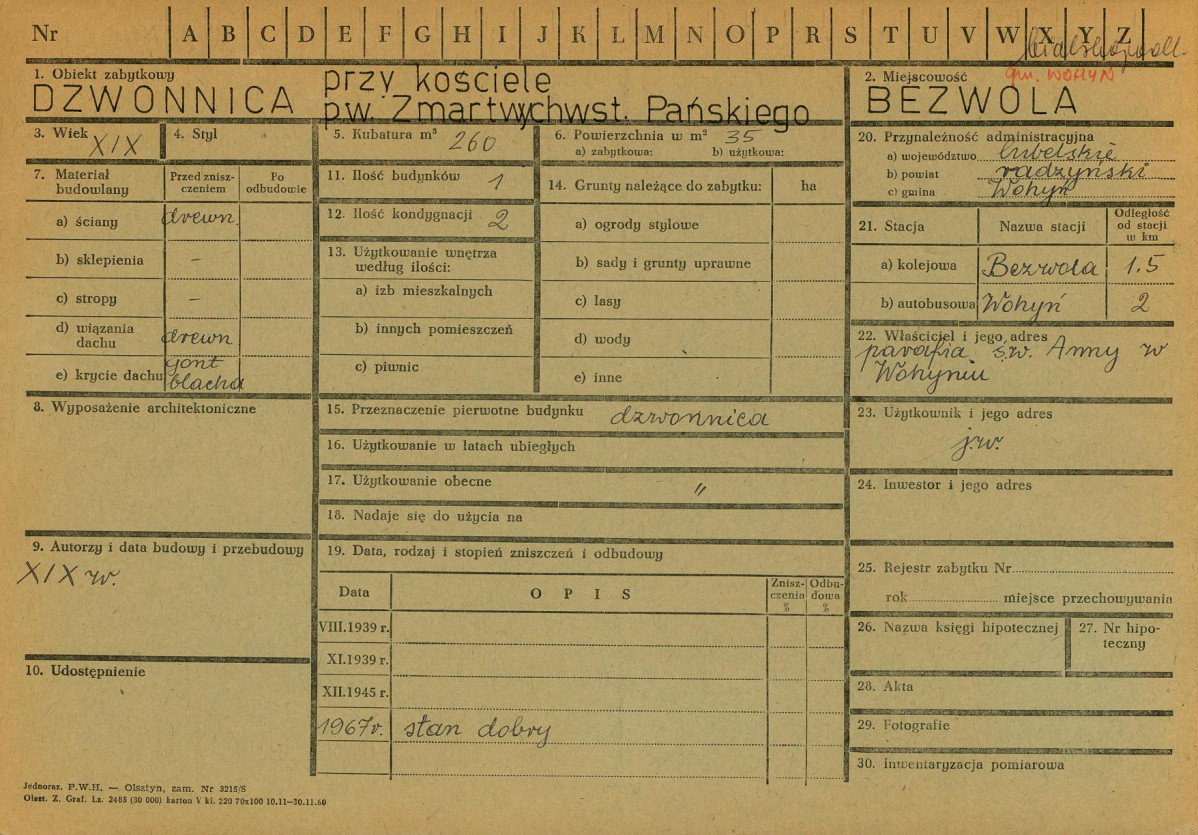 Nr A B C D E F G H I J K L M N O P R S T U V W X Y Z
bialskopodl.
gm. WOHYŃ
1. Obiekt zabytkowy
DZWONNICA przy kościele
p.w. Zmartwychwst. Pańskiego
2. Miejscowość
BEZWOLA
3. Wiek XIX
4. Styl
5. Kubatura m³ 260
6. Powierzchnia w m² 35
a) zabytkowa: b) użytkowa:
7. Materiał budowlany
Przed znisz-
czeniem
Po
odbudowie
a) ściany drewn.
b) sklepienia –
c) stropy –
d) wiązania
dachu drewn
e) krycie dachu gont
blacha
8. Wyposażenie architektoniczne
9. Autorzy i data budowy i przebudowy
XIX w.
10. Udostępnienie
11. Ilość budynków 1
12. Ilość kondygnacji 2
13. Użytkowanie wnętrza
według ilości:
a) izb mieszkalnych
b) innych pomieszczeń
c) piwnic
14. Grunty należące do zabytku: ha
a) ogrody stylowe
b) sady i grunty uprawne
c) lasy
d) wody
e) inne
15. Przeznaczenie pierwotne budynku dzwonnica
16. Użytkowanie w latach ubiegłych
17. Użytkowanie obecne "
18. Nadaje się do użycia na
19. Data, rodzaj i stopień zniszczeń i odbudowy
Data OPIS Znisz-
czenia
%
Odbu-
dowa
%
VIII.1939 r.
XI.1939 r.
XII.1945 r.
1967r. stan dobry
20. Przynależność administracyjna
a) województwo lubelskie
b) powiat radzyński
c) gmina Wohyń
21. Stacja Nazwa stacji Odległość
od stacji
w km
a) kolejowa Bezwola 1.5
b) autobusowa Wohyń 2
22. Właściciel i jego adres
parafia św. Anny w
Wohyniu
23. Użytkownik i jego adres
j.w.
24. Inwestor i jego adres
25. Rejestr zabytku Nr
rok miejsce przechowywania
26. Nazwa księgi hipotecznej
27. Nr hipo-
teczny
28. Akta
29. Fotografie
30. Inwentaryzacja pomiarowa
Jednoraz. P.W.H. — Olsztyn, zam. Nr 3215/S
Olszt. Z. Graf. Lz. 2485 (30 000) karton V kl. 220 70x100 10.11—30.11.60